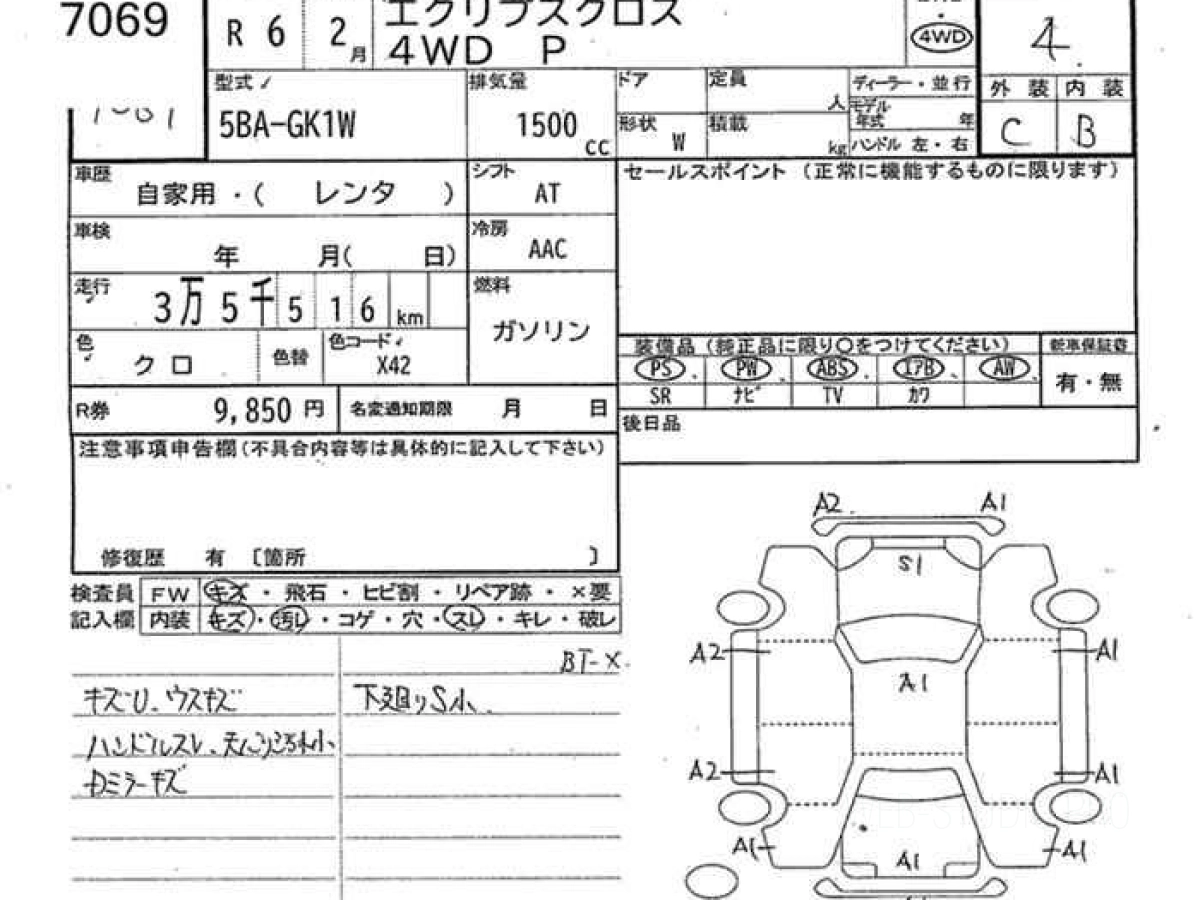 7069
R 6 2月
エクリプスクロス
4WD P
4WD
4
型式
5BA-GK1W
排気量
1500 cc
ドア
定員
人
ディーラー・並行
モデル年式 年
形状 W
積載 kg
ハンドル 左・右
外装 内装
C B
車歴
自家用・( レンタ )
シフト
AT
セールスポイント (正常に機能するものに限ります)
車検
年 月( 日)
冷房
AAC
走行
3万5千516 km
燃料
ガソリン
色
クロ
色替
色コード
X42
装備品 (純正品に限り○をつけてください)
新車保証書
PS PW ABS エアB AW
有・無
SR ナビ TV カワ
R券 9,850円
名変通知期限 月 日
後日品
注意事項申告欄(不具合内容等は具体的に記入して下さい)
修復歴 有 [箇所 ]
検査員 FW キズ・飛石・ヒビ割・リペア跡・×要
記入欄 内装 キズ・汚レ・コゲ・穴・スレ・キレ・破レ
BT-X
キズU. ウスキズ
下廻りS小.
ハンドルスレ、
ミラーキズ
A2 A1
S1
A2 A1
A1
A2 A1
A1 A1
A1